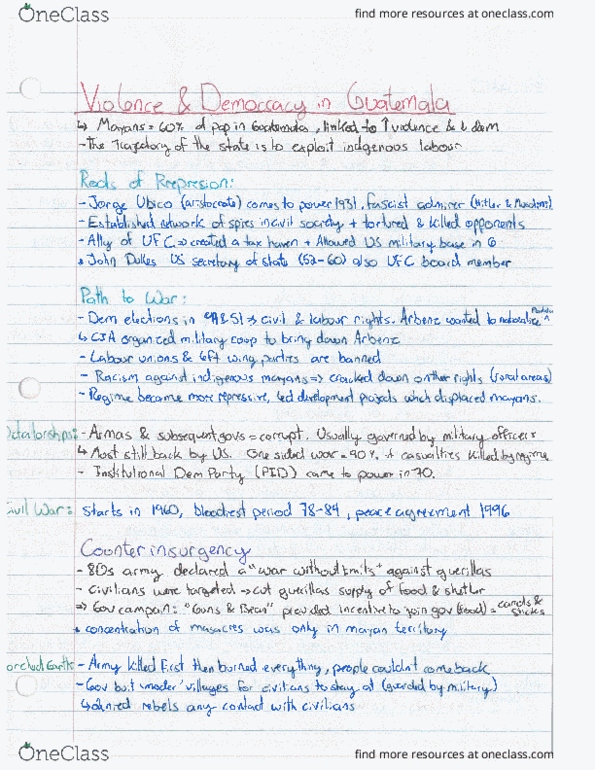 OneClass
find more resources at oneclass.com
Violence & Democracy in Guatemala
↳ Mayans = 60% of pop in Guatemala, linked to ↑ violence & ↓ dem
- The trajectory of the state is to exploit indigenous labour
Roots of Reepresion:
- Jorge Ubico (aristocrate) comes to power 1931, fascist admirer (Hitler & Mussolini)
- Established network of spies in civil society + tortured & killed opponents
- Ally of UFC => created a tax haven + Allowed US military base in G
John Dulles US secretary of state (52-60) also UFC board member
Path to War:
- Dem elections in => civil & labour rights. Arbenz wanted to nationalize
↳ CIA organized military coup to bring down Arbenz
- Labour unions & left wing parties are banned
- Racism against indigenous mayans => cracked down on their rights (rural areas)
- Regime became more repressive, led development projects which displaced mayans.
ictatorships: - Armas & subsequent govs = corrupt. Usually governed by military officers
↳ Most still back by US. One sided war = 90% of casualties killed by regime
- Institutional Dem Party (PID) came to power in 70.
ivil War: starts in 1960, bloodiest period 78-84, peace agreement 1996
Counter insurgency
- 80s army declared a "war without limits" against guerillas
- Civilians were targeted -> cut guerillas supply of food & shelter
=> Gov campain: "Guns & Beans" provided incentive to join gov (food) = carrots & sticks
concentration of masacres was only in mayan territory
orched Earth - Army killed first then burned everything, people couldnt comeback
- Gov built 'model' villages for civilians to stay at (guarded by military)
↳ denied rebels any contact with civilians
OneClass
find more resources at oneclass.com